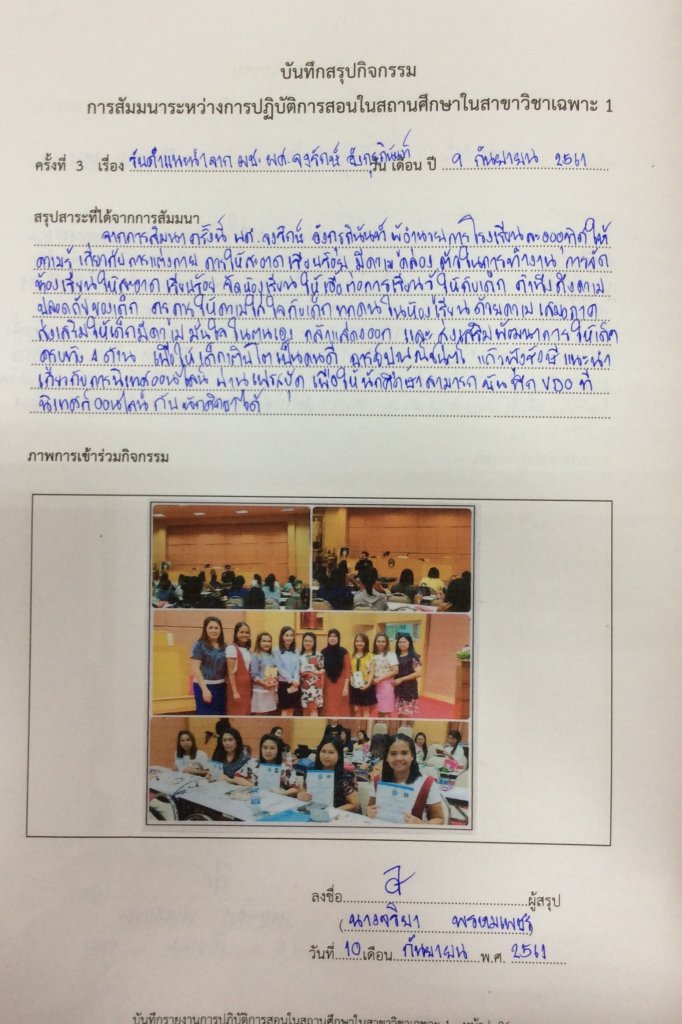 บันทึกสรุปกิจกรรม
การสัมมนาระหว่างการปฏิบัติการสอนในสถานศึกษาในสาขาวิชาเฉพาะ 1
ครั้งที่ 3 เรื่อง รับคำแนะนำจาก ผศ. จงรักษ์ อังกุราภินันท์ วัน เดือน ปี 9 กันยายน 2561
สรุปสาระที่ได้จากการสัมมนา
จากการสัมมนาครั้งนี้ ผศ. จงรักษ์ อังกุราภินันท์ ผู้อำนวยการโรงเรียนละอออุทิศ ให้
ความรู้ เกี่ยวกับการแต่งกาย การให้สะอาด เรียบร้อย มีความคล่องตัวในการทำงาน การจัด
ห้องเรียนให้สะอาด เรียบร้อย จัดห้องเรียนให้เอื้อต่อการเรียนรู้ให้กับเด็ก คำนึงถึงความ
ปลอดภัยของเด็ก ครูควรให้ความใส่ใจกับเด็กทุกคนในห้องเรียนด้วยความเสมอภาค
ส่งเสริมให้เด็กมีความมั่นใจในตนเอง กล้าแสดงออก และส่งเสริมพัฒนาการให้เด็ก
ครบทั้ง 4 ด้าน เพื่อให้เด็กเติบโตเป็นคนดี แนะนำ
เกี่ยวกับการนิเทศออนไลน์ ผ่านเฟสบุ๊ค เพื่อให้นักศึกษาสามารถบันทึก VDO ที่
นิเทศก์ออนไลน์กับนักศึกษาได้
ภาพการเข้าร่วมกิจกรรม
ลงชื่อ ผู้สรุป
(นางจริยา พรหมเพชร)
วันที่ 10 เดือน กันยายน พ.ศ. 2561
บันทึกรายงานการปฏิบัติการสอนในสถานศึกษาในสาขาวิชาเฉพาะ 1